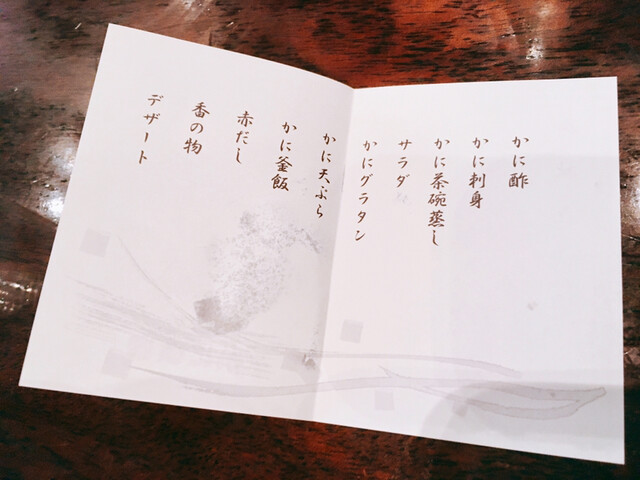 かに酢
かに刺身
かに茶碗蒸し
サラダ
かにグラタン
かに天ぷら
かに釜飯
赤だし
香の物
デザート